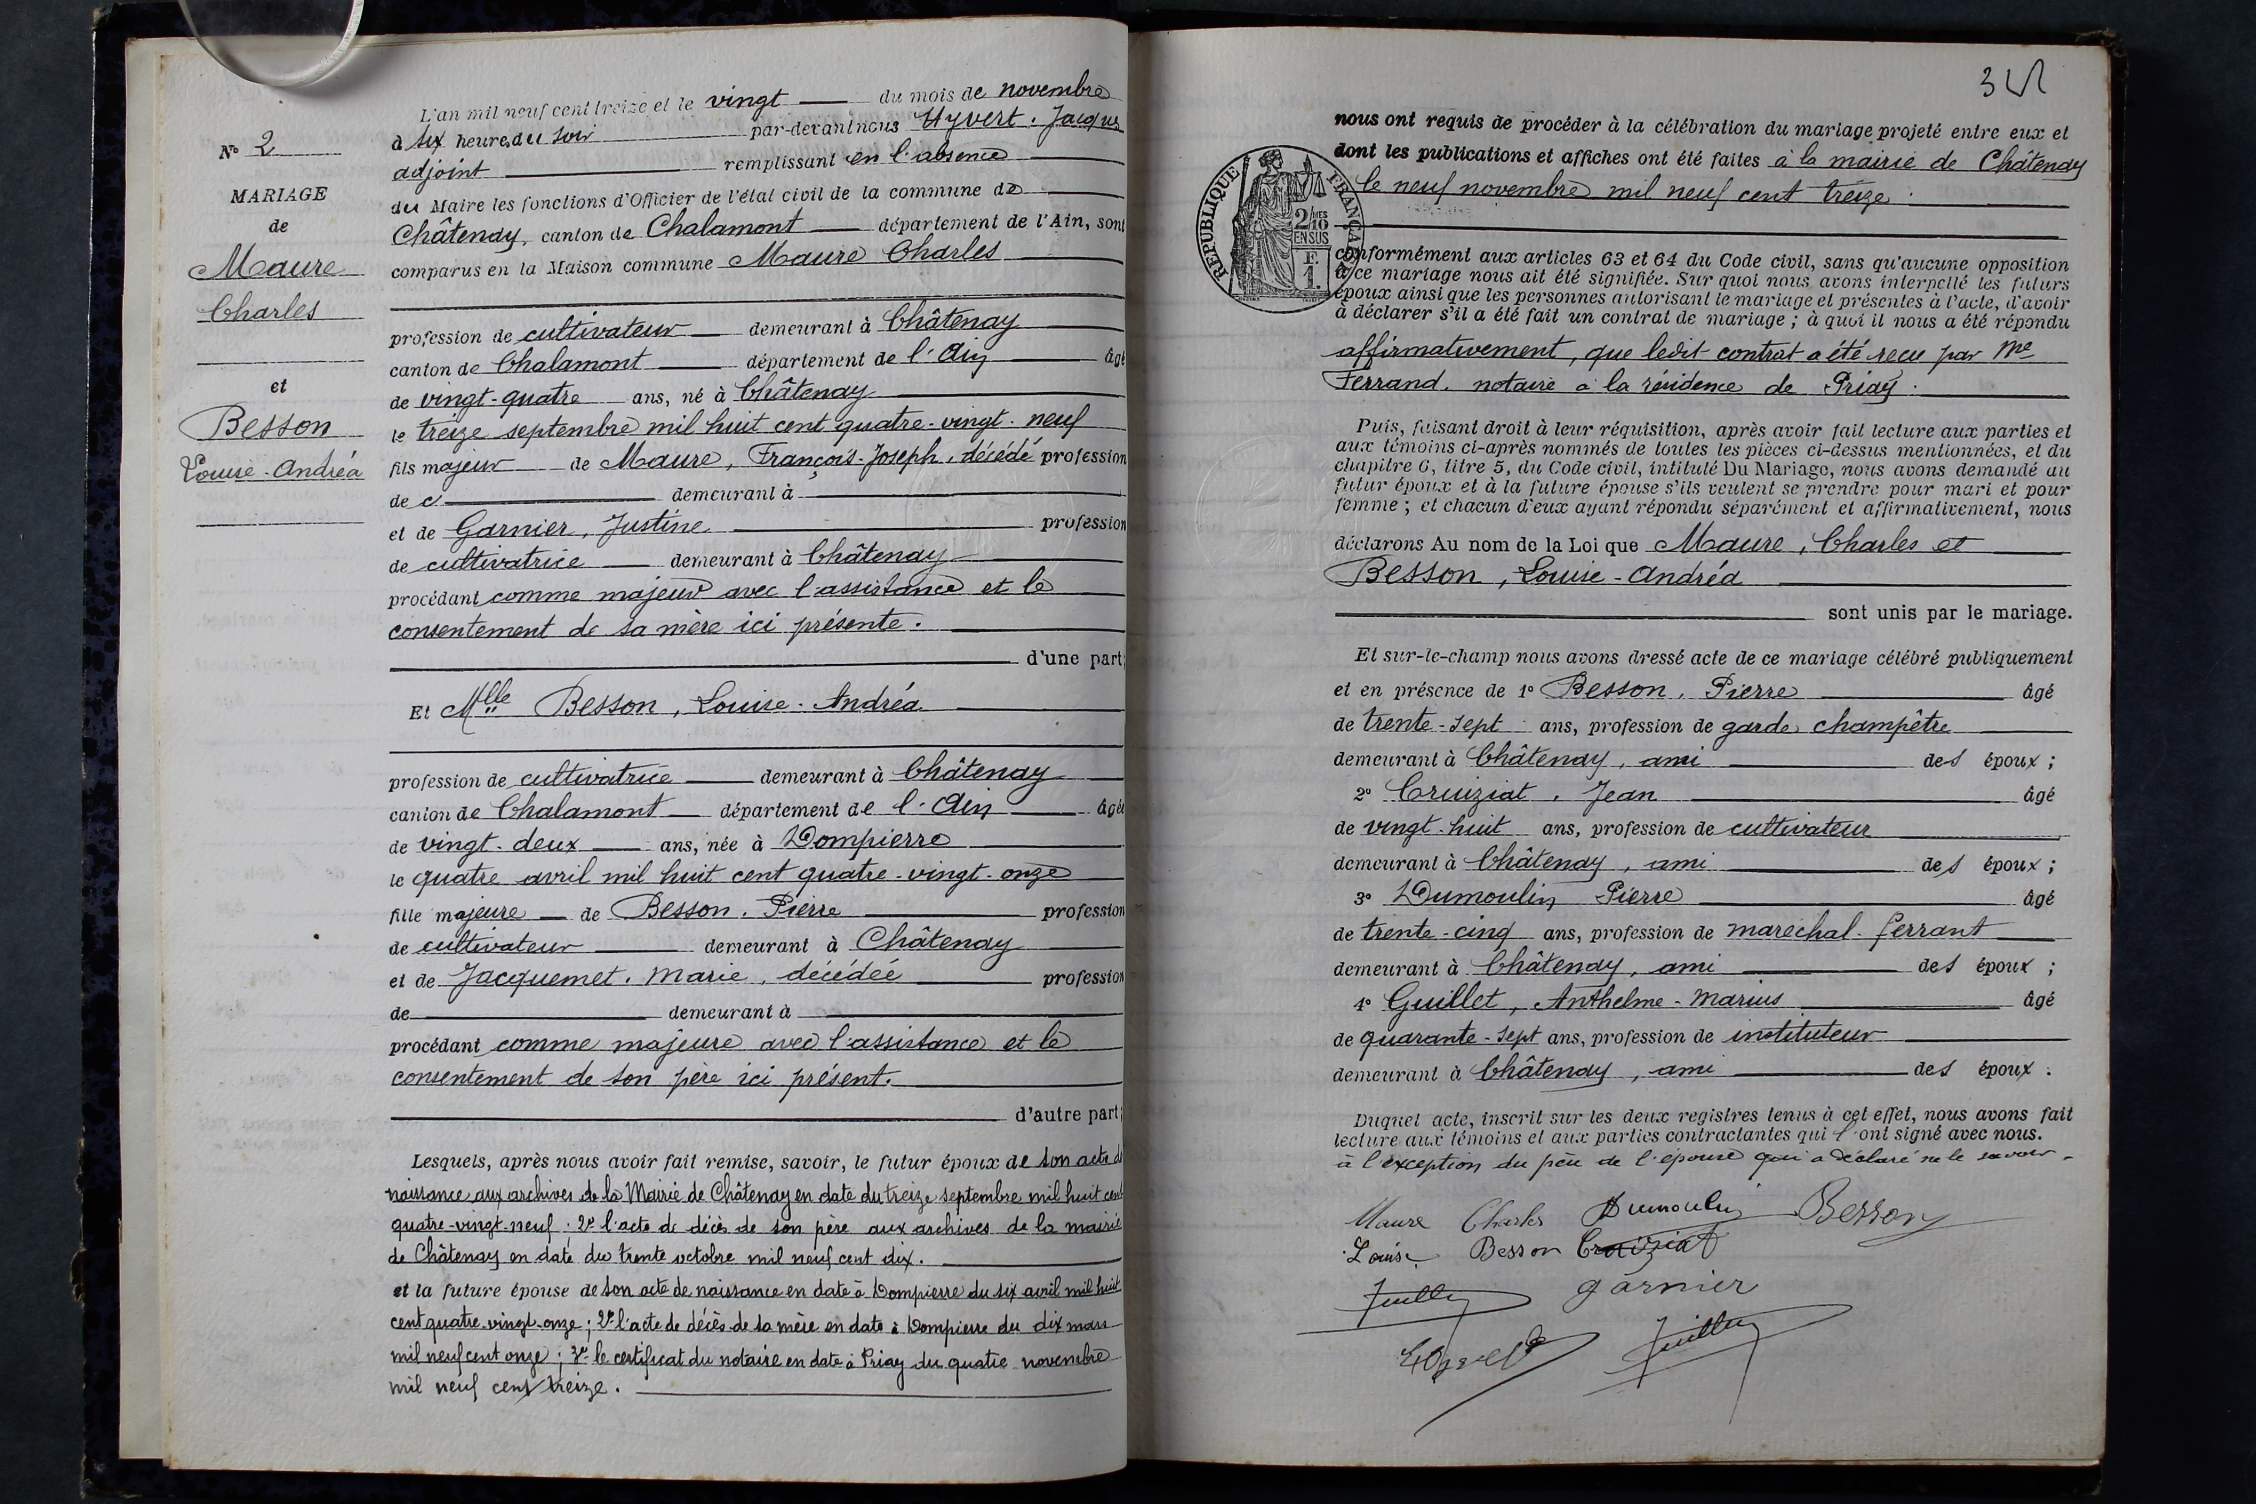 L'an mil neuf cent treize et le vingt du mois de novembre
à six heures du soir par-devant nous Hyvert. Jacques
adjoint remplissant en l'absence
du Maire les fonctions d'Officier de l'état civil de la commune de
Châtenay, canton de Chalamont département de l'Ain, sont
comparus en la Maison commune Maure Charles
N° 2
MARIAGE
de
Maure
Charles
et
Besson
Louise-Andréa
profession de cultivateur demeurant à Châtenay
canton de Chalamont département de l'Ain âgé
de vingt-quatre ans, né à Châtenay
le treize septembre mil huit cent quatre-vingt-neuf
fils majeur de Maure, François-Joseph, décédé profession
de demeurant à
et de Garnier, Justine profession
de cultivatrice demeurant à Châtenay
procédant comme majeur avec l'assistance et le
consentement de sa mère ici présente.
d'une part;
Et Mlle Besson, Louise-Andréa
profession de cultivatrice demeurant à Châtenay
canton de Chalamont département de l'Ain âgée
de vingt-deux ans, née à Dompierre
le quatre avril mil huit cent quatre-vingt-onze
fille majeure de Besson. Pierre profession
de cultivateur demeurant à Châtenay
et de Jacquemet. Marie, décédée profession
de demeurant à
procédant comme majeure avec l'assistance et le
consentement de son père ici présent.
d'autre part;
Lesquels, après nous avoir fait remise, savoir, le futur époux de son acte de
naissance aux archives de la Mairie de Châtenay en date du treize septembre mil huit cent
quatre-vingt-neuf; 2° l'acte de décès de son père aux archives de la mairie
de Châtenay en date du trente octobre mil neuf cent dix.
et la future épouse de son acte de naissance en date à Dompierre du six avril mil huit
cent quatre-vingt-onze; 2° l'acte de décès de sa mère en date à Dompierre du dix mars
mil neuf cent onze; 3° le certificat du notaire en date à Priay du quatre novembre
mil neuf cent treize.
nous ont requis de procéder à la célébration du mariage projeté entre eux et
dont les publications et affiches ont été faites à la mairie de Châtenay
le neuf novembre mil neuf cent treize.
RÉPUBLIQUE FRANÇAISE
2/10 MES
EN SUS
F.
1.
conformément aux articles 63 et 64 du Code civil, sans qu'aucune opposition
à ce mariage nous ait été signifiée. Sur quoi nous avons interpellé les futurs
époux ainsi que les personnes autorisant le mariage et présentes à l'acte, d'avoir
à déclarer s'il a été fait un contrat de mariage; à quoi il nous a été répondu
affirmativement, que ledit contrat a été reçu par Me
Ferrand. notaire à la résidence de Priay.
Puis, faisant droit à leur réquisition, après avoir fait lecture aux parties et
aux témoins ci-après nommés de toutes les pièces ci-dessus mentionnées, et du
chapitre 6, titre 5, du Code civil, intitulé Du Mariage, nous avons demandé au
futur époux et à la future épouse s'ils veulent se prendre pour mari et pour
femme; et chacun d'eux ayant répondu séparément et affirmativement, nous
déclarons Au nom de la Loi que Maure, Charles et
Besson, Louise-Andréa
sont unis par le mariage.
Et sur-le-champ nous avons dressé acte de ce mariage célébré publiquement
et en présence de 1° Besson. Pierre âgé
de trente-sept ans, profession de garde champêtre
demeurant à Châtenay, ami des époux;
2° Cruiziat. Jean âgé
de vingt-huit ans, profession de cultivateur
demeurant à Châtenay, ami des époux;
3° Dumoulin Pierre âgé
de trente-cinq ans, profession de maréchal-ferrant
demeurant à Châtenay, ami des époux;
4° Guillet, Anthelme-Marius âgé
de quarante-sept ans, profession de instituteur
demeurant à Châtenay, ami des époux.
Duquel acte, inscrit sur les deux registres tenus à cet effet, nous avons fait
lecture aux témoins et aux parties contractantes qui l'ont signé avec nous.
à l'exception du père de l'épouse qui a déclaré ne le savoir
Maure Charles Dumoulin Besson
Louise Besson Cruiziat
garnier